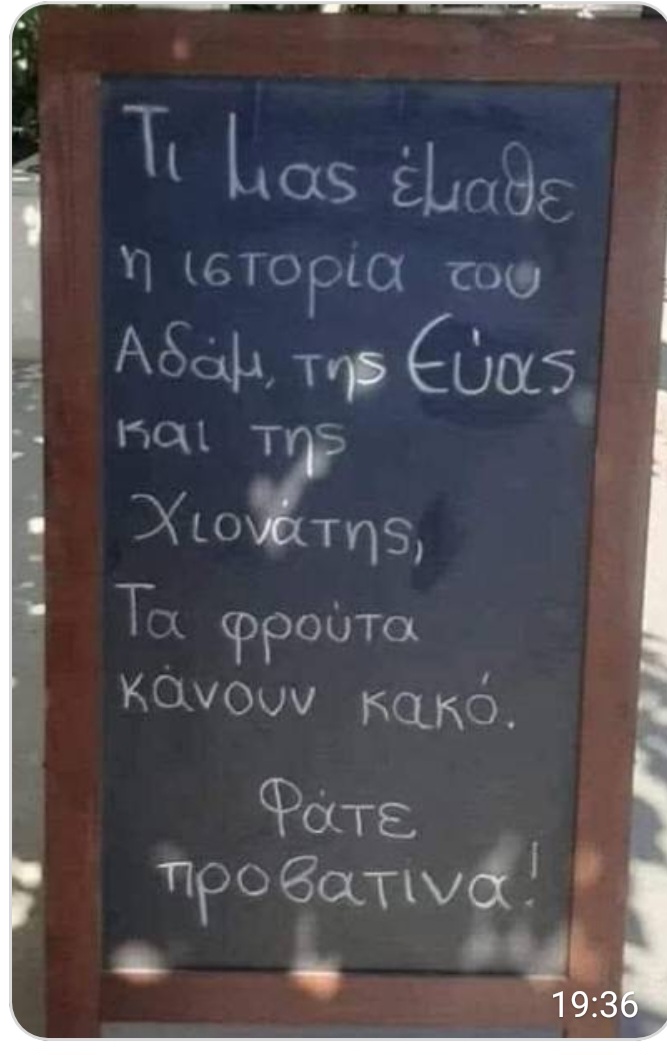 Τι μας έμαθε
η ιστορία του
Αδάμ, της Εύας
και της
Χιονάτης,
Τα φρούτα
κάνουν κακό.
Φάτε
προβατίνα!
19:36